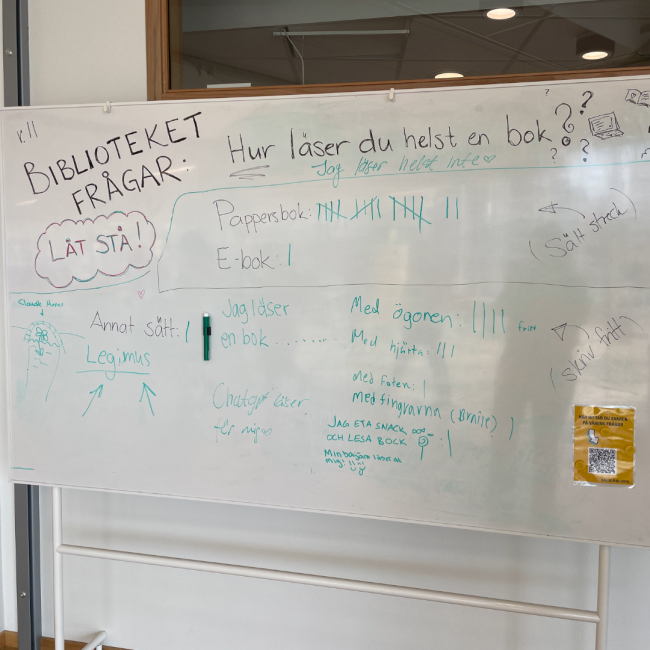 v.11
BIBLIOTEKET
FRÅGAR:
Hur läser du helst en bok?
Jag läser helst inte
LÅT STÅ!
Pappersbok:
E-bok:
(Sätt streck)
Annat sätt:
Legimus
Jag läser
en bok ........
Med ögonen:
Med hjärta:
Med foten:
Med fingrarna (Braille)
JAG ETA SNACK
OCH LESA BOCK
mig:
(skriv fritt)
Chatgpt läser
för mig